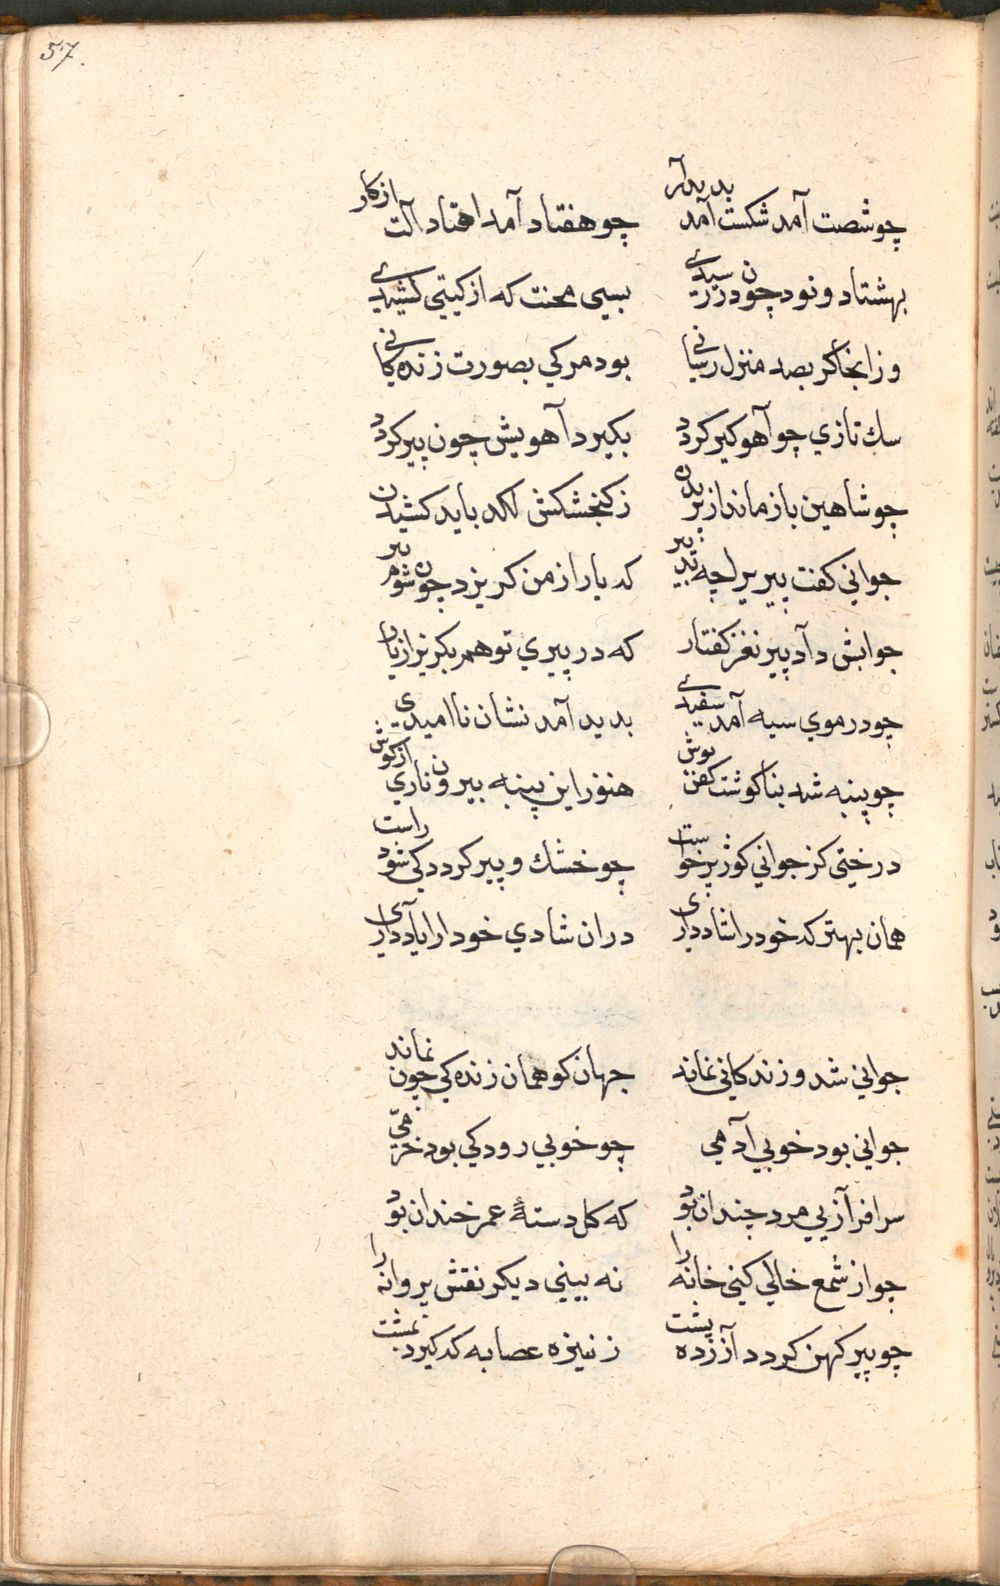 57.
چو شصت آمد شکست آمد بدیدار چو هفتاد آمد افتاد آلت از کار
بهشتاد و نود چون در رسیدی بسی محنت که از کیتی کشیدی
وز انجا کر بصد منزل رسانی بود مرکی بصورت زنده کانی
سك تازي چو آهو کیر کردد بکیرد آهویش چون پیر کردد
چو شاهین باز ماند از پریدن ز کنجشکش لکد باید کشیدن
جواني کفت پیریرا چه تدبیر که یار از من کریزد چون شوم پیر
جوابش داد پیر نغز کفتار که در پیري تو هم بکریز از یار
چو در موي سیه آمد سفیدی بدید آمد نشان ناامیدی
چو پنبه شد بناکوشت کفن پوش هنوز این پنبه بیرون ناري از کوش
درختی کز جواني کوژ برخواست چو خشك و پیر کردد کی شود راست
همان بهتر که خود را شاد داری دران شادي خودارا یاد آری
جواني شد و زندکانی نماند جهان کو همان زنده کی چون نماند
جواني بود خوبي آدمي چو خوبي رود کي بود خرمّي
سرافرازیي مرد چندان بود که کل دستهٔ عمر خندان بود
چو از شمع خالي کني خانه را نه بیني دیکر نقش پروانه را
چو پیر کهن کردد آزرده پشت ز نیزه عصا به که کیرد بمشت